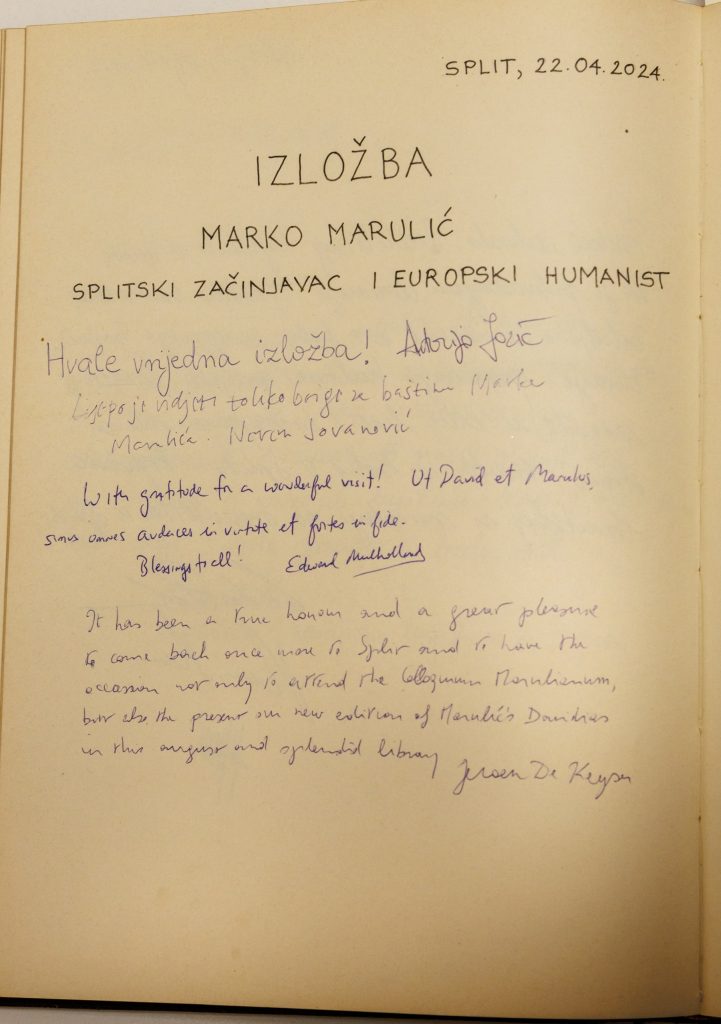 SPLIT, 22.04.2024.
IZLOŽBA
MARKO MARULIĆ
SPLITSKI ZAČINJAVAC I EUROPSKI HUMANIST
Hvale vrijedna izložba!
Lijepo je vidjeti toliko brige za baštinu Marka
Marulića. Neven Jovanović
With gratitude for a wonderful visit! Ut David et Marulus,
simus omnes audaces in virtute et fortes in fide.
Blessings to all! Edward Mulholland
It has been a true honour and a great pleasure
to come back once more to Split and to have the
occasion not only to attend the Colloquium Marulianum,
but also to present our new edition of Marulić's Davidias
in this august and splendid library
Jeroen De Keyser